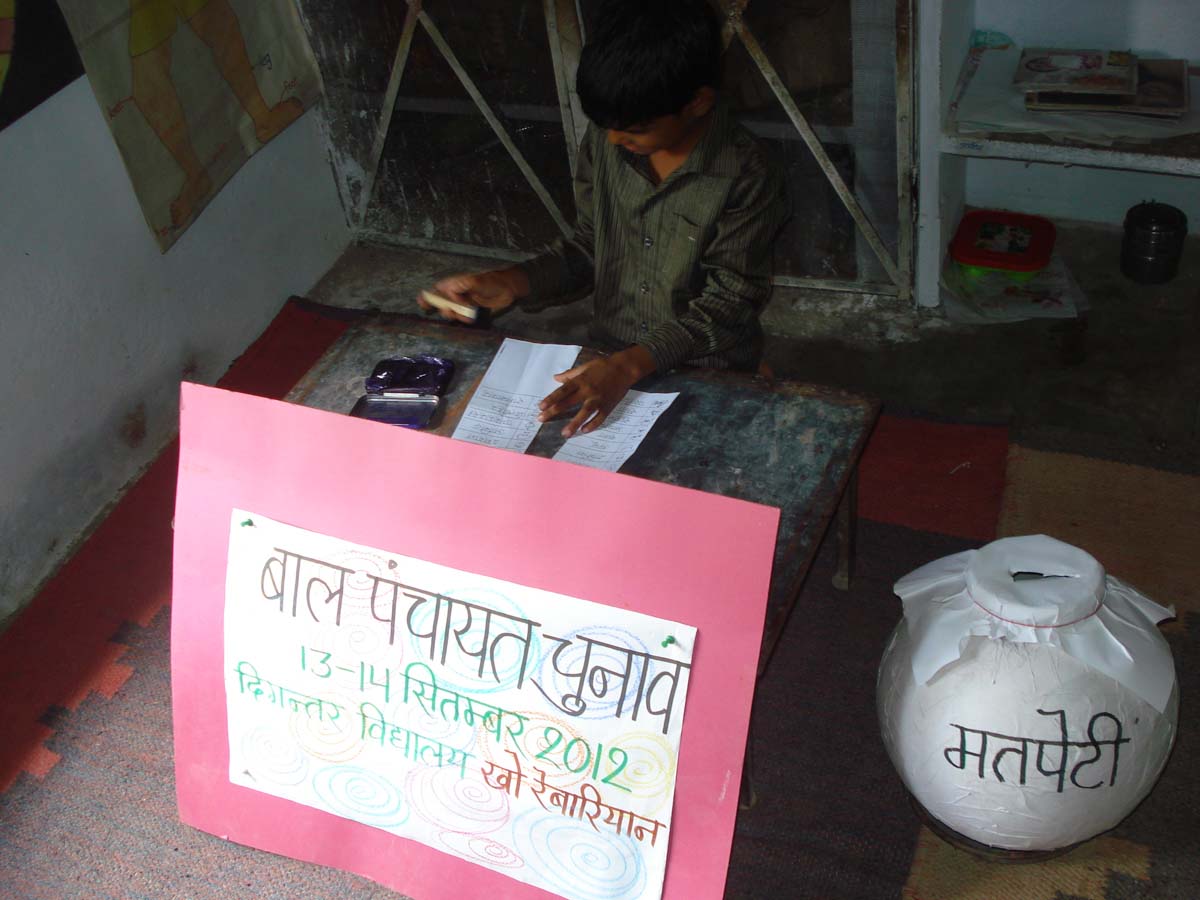 बाल पंचायत चुनाव
13-14 सितम्बर 2012
दिगन्तर विद्यालय खो रेबारियान
मतपेटी